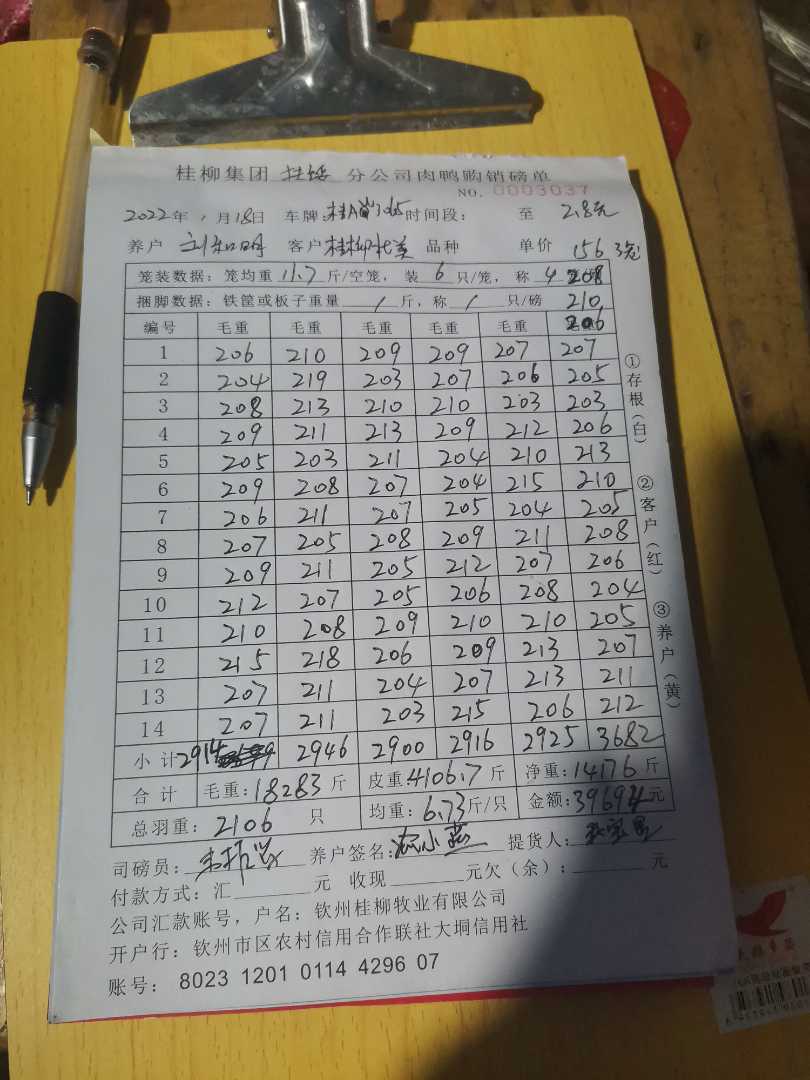 桂柳集团 分公司肉鸭购销磅单
NO. 0003037
2022年 1月18日 车牌: 时间段: 至 2.8元
养户 刘和明 客户 桂柳 品种 单价 156 3元
笼装数据: 笼均重 11.7 斤/空笼, 装 6 只/笼, 称 4 208
捆脚数据: 铁筐或板子重量 / 斤, 称 / 只/磅 210
编号 毛重 毛重 毛重 毛重 毛重 206
1 206 210 209 209 207 207
2 204 219 203 207 206 205
3 208 213 210 210 203 203
4 209 211 213 209 212 206
5 205 203 211 204 210 213
6 209 208 207 204 215 210
7 206 211 207 205 204 205
8 207 205 208 209 211 208
9 209 211 205 212 207 206
10 212 207 205 206 208 204
11 210 208 209 210 210 205
12 215 218 206 209 213 207
13 207 211 204 207 213 211
14 207 211 203 215 206 212
小计 2914 2946 2900 2916 2925 3682
合计 毛重: 18283 斤 皮重: 4106.7 斤 净重: 14176 斤
总羽重: 2106 只 均重: 6.73 斤/只 金额: 39694 元
司磅员: 养户签名: 提货人:
付款方式: 汇 元 收现 元欠(余): 元
公司汇款账号, 户名: 钦州桂柳牧业有限公司
开户行: 钦州市区农村信用合作联社大垌信用社
账号: 8023 1201 0114 4296 07
①存根(白)
②客户(红)
③养户(黄)